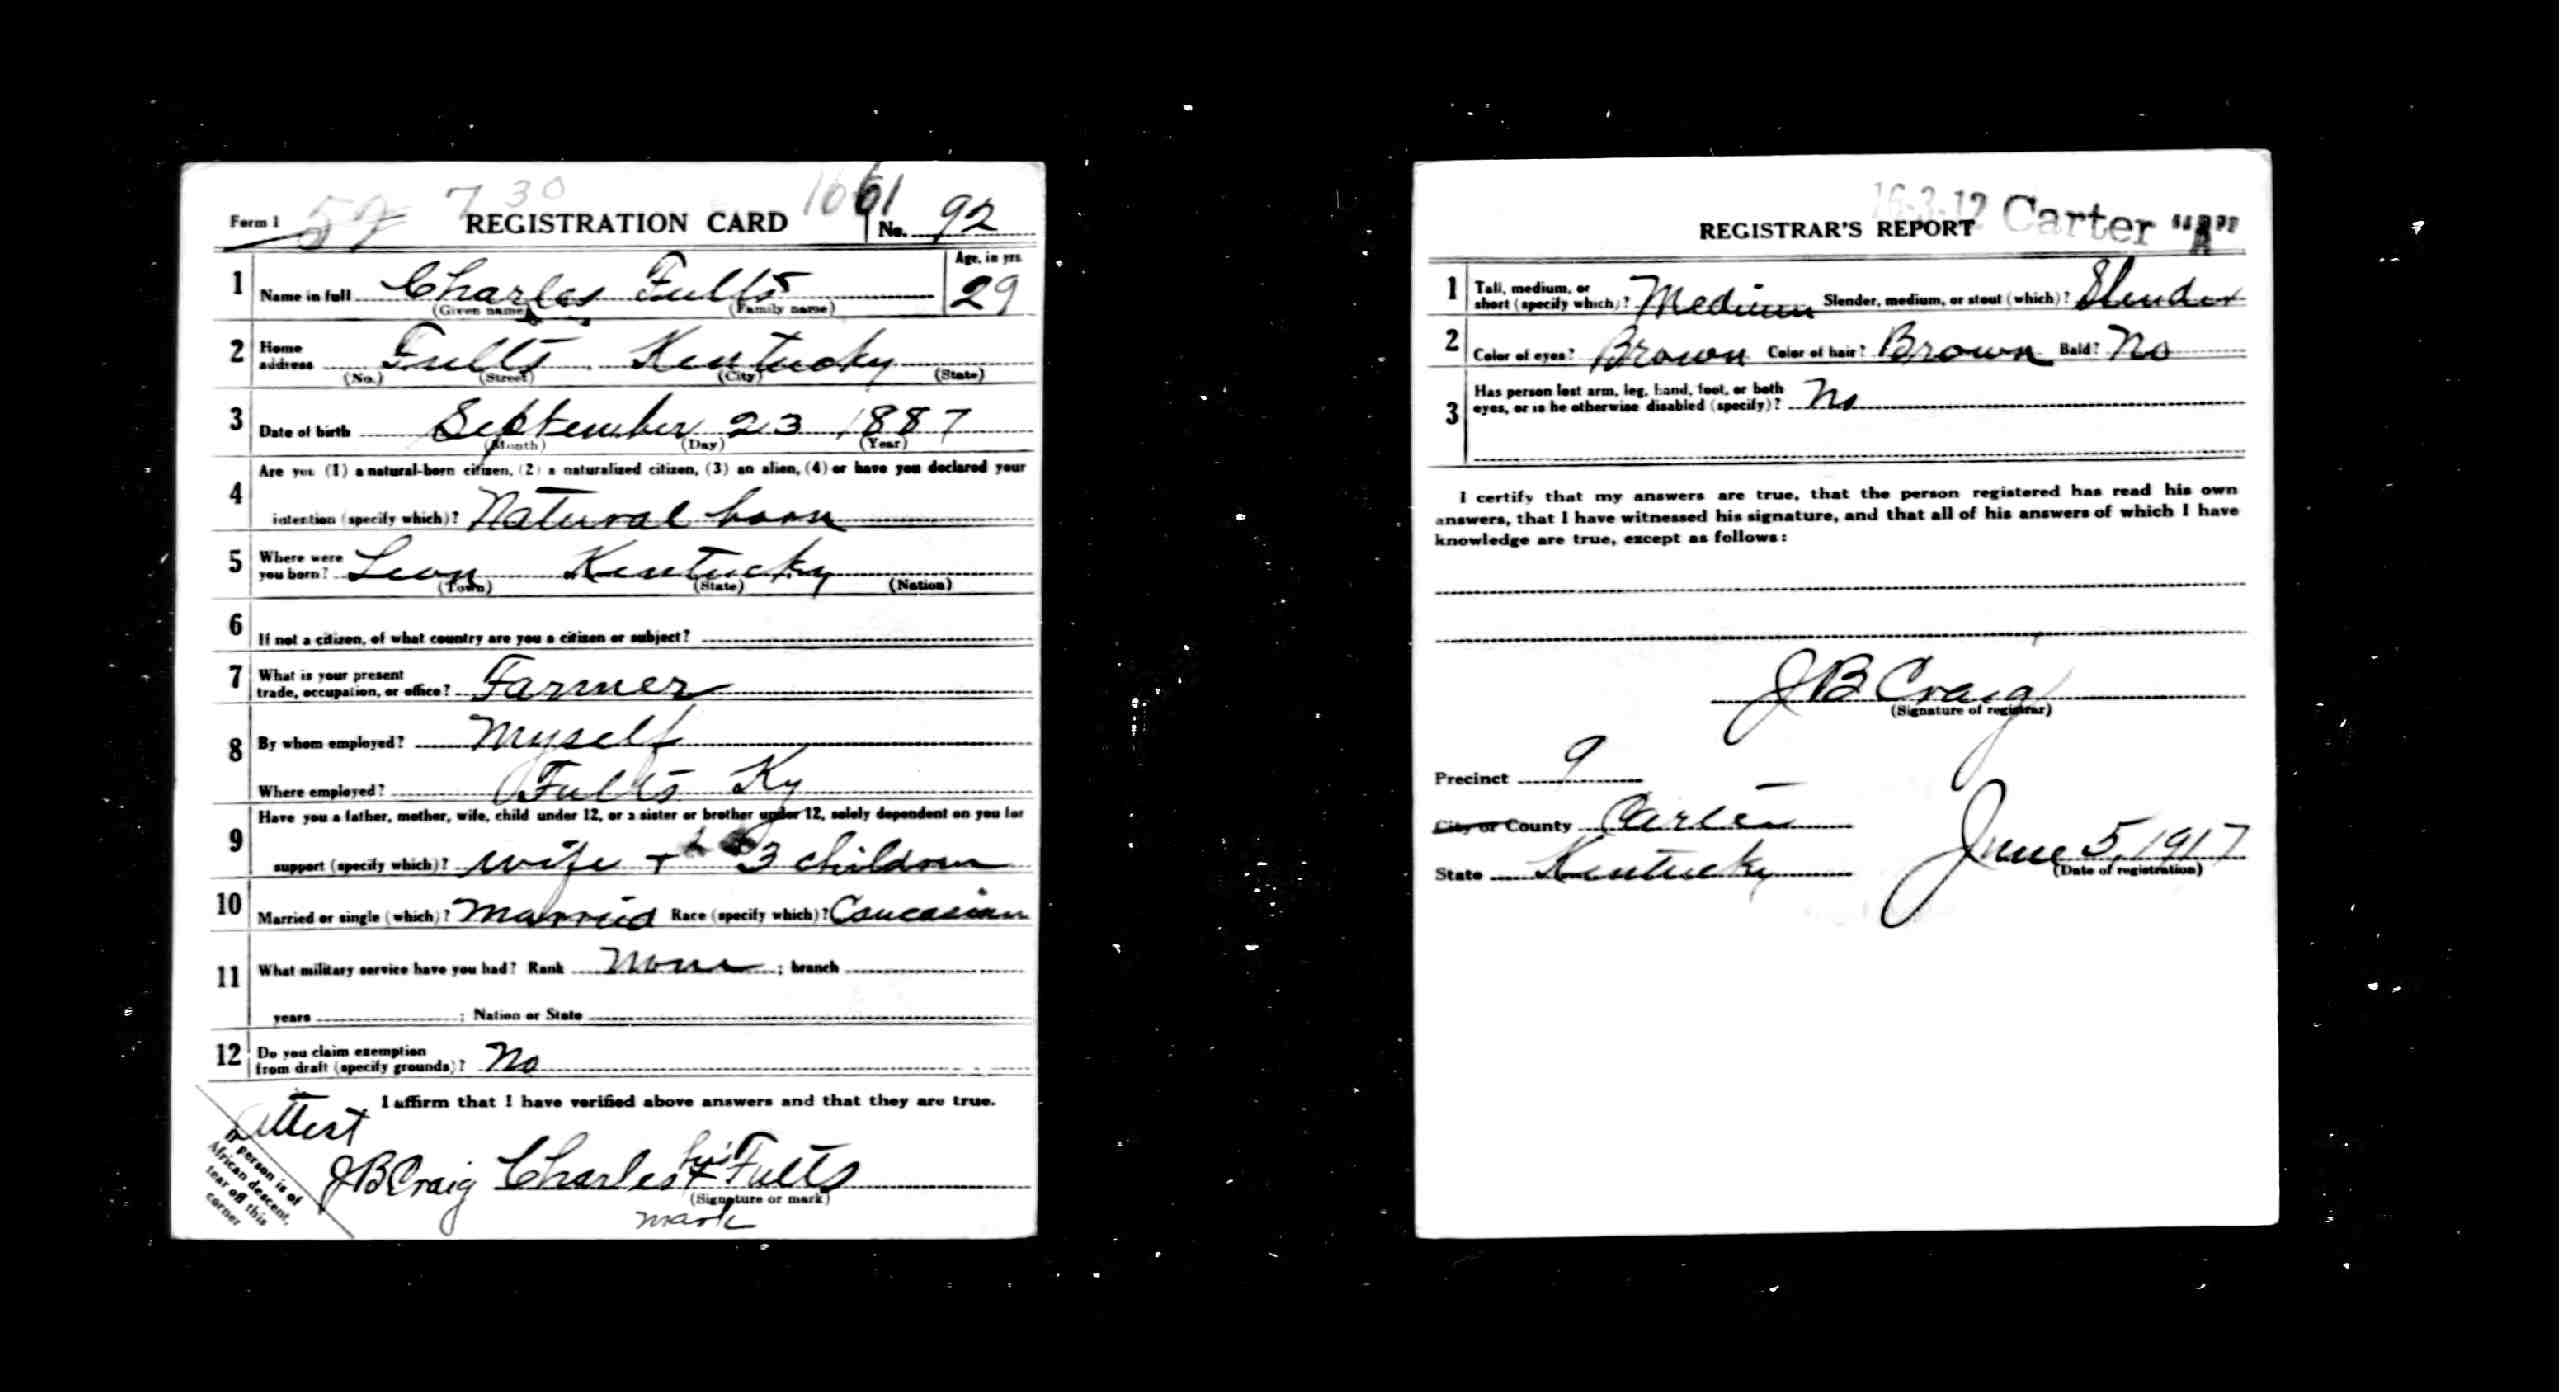 7 30 1661
Form 1 REGISTRATION CARD No. 92
1 Name in full Charles Fults Age, in yrs. 29
(Given name) (Family name)
2 Home address Fults Kentucky
(No.) (Street) (City) (State)
3 Date of birth September 23 1887
(Month) (Day) (Year)
Are you (1) a natural-born citizen, (2) a naturalized citizen, (3) an alien, (4) or have you declared your
4 intention (specify which)? Natural born
5 Where were you born? Leon Kentucky
(Town) (State) (Nation)
6 If not a citizen, of what country are you a citizen or subject?
7 What is your present
trade, occupation, or office? Farmer
8 By whom employed? Myself
Where employed? Fults Ky
Have you a father, mother, wife, child under 12, or a sister or brother under 12, solely dependent on you for
9 support (specify which)? wife + 3 children
10 Married or single (which)? Married Race (specify which)? Caucasian
11 What military service have you had? Rank None ; branch
years ; Nation or State
12 Do you claim exemption
from draft (specify grounds)? No
I affirm that I have verified above answers and that they are true.
Attest
J B Craig Charles his x Fults
(Signature or mark)
mark
If person is of
African descent,
tear off this
corner
Carter "A"
REGISTRAR'S REPORT
1 Tall, medium, or
short (specify which)? Medium Slender, medium, or stout (which)? Slender
2 Color of eyes? Brown Color of hair? Brown Bald? No
3 Has person lost arm, leg, hand, foot, or both
eyes, or is he otherwise disabled (specify)? No
I certify that my answers are true, that the person registered has read his own
answers, that I have witnessed his signature, and that all of his answers of which I have
knowledge are true, except as follows:
J B Craig
(Signature of registrar)
Precinct 9
City or County Carter
State Kentucky June 5, 1917
(Date of registration)